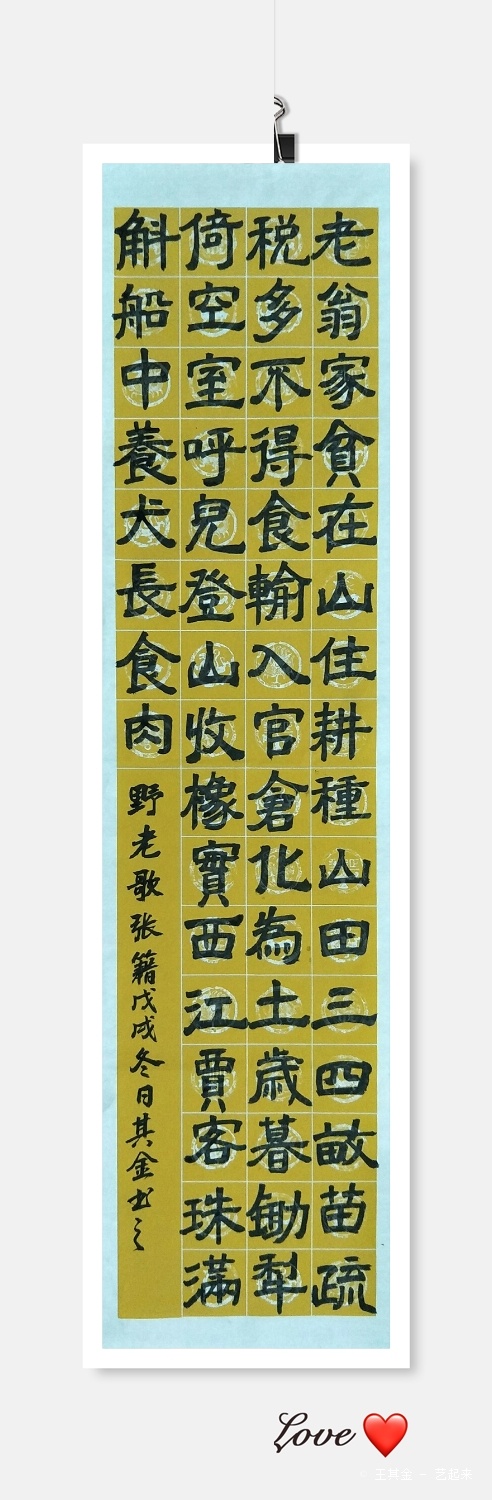 老翁家貧在山住耕種山田三四畝苗疏
税多不得食輸入官倉化為土歲暮鋤犁
倚空室呼兒登山收橡實西江賈客珠滿
斛船中養犬長食肉
野老歌张籍戊戌冬日其金书之
Love
王其金 - 艺起来